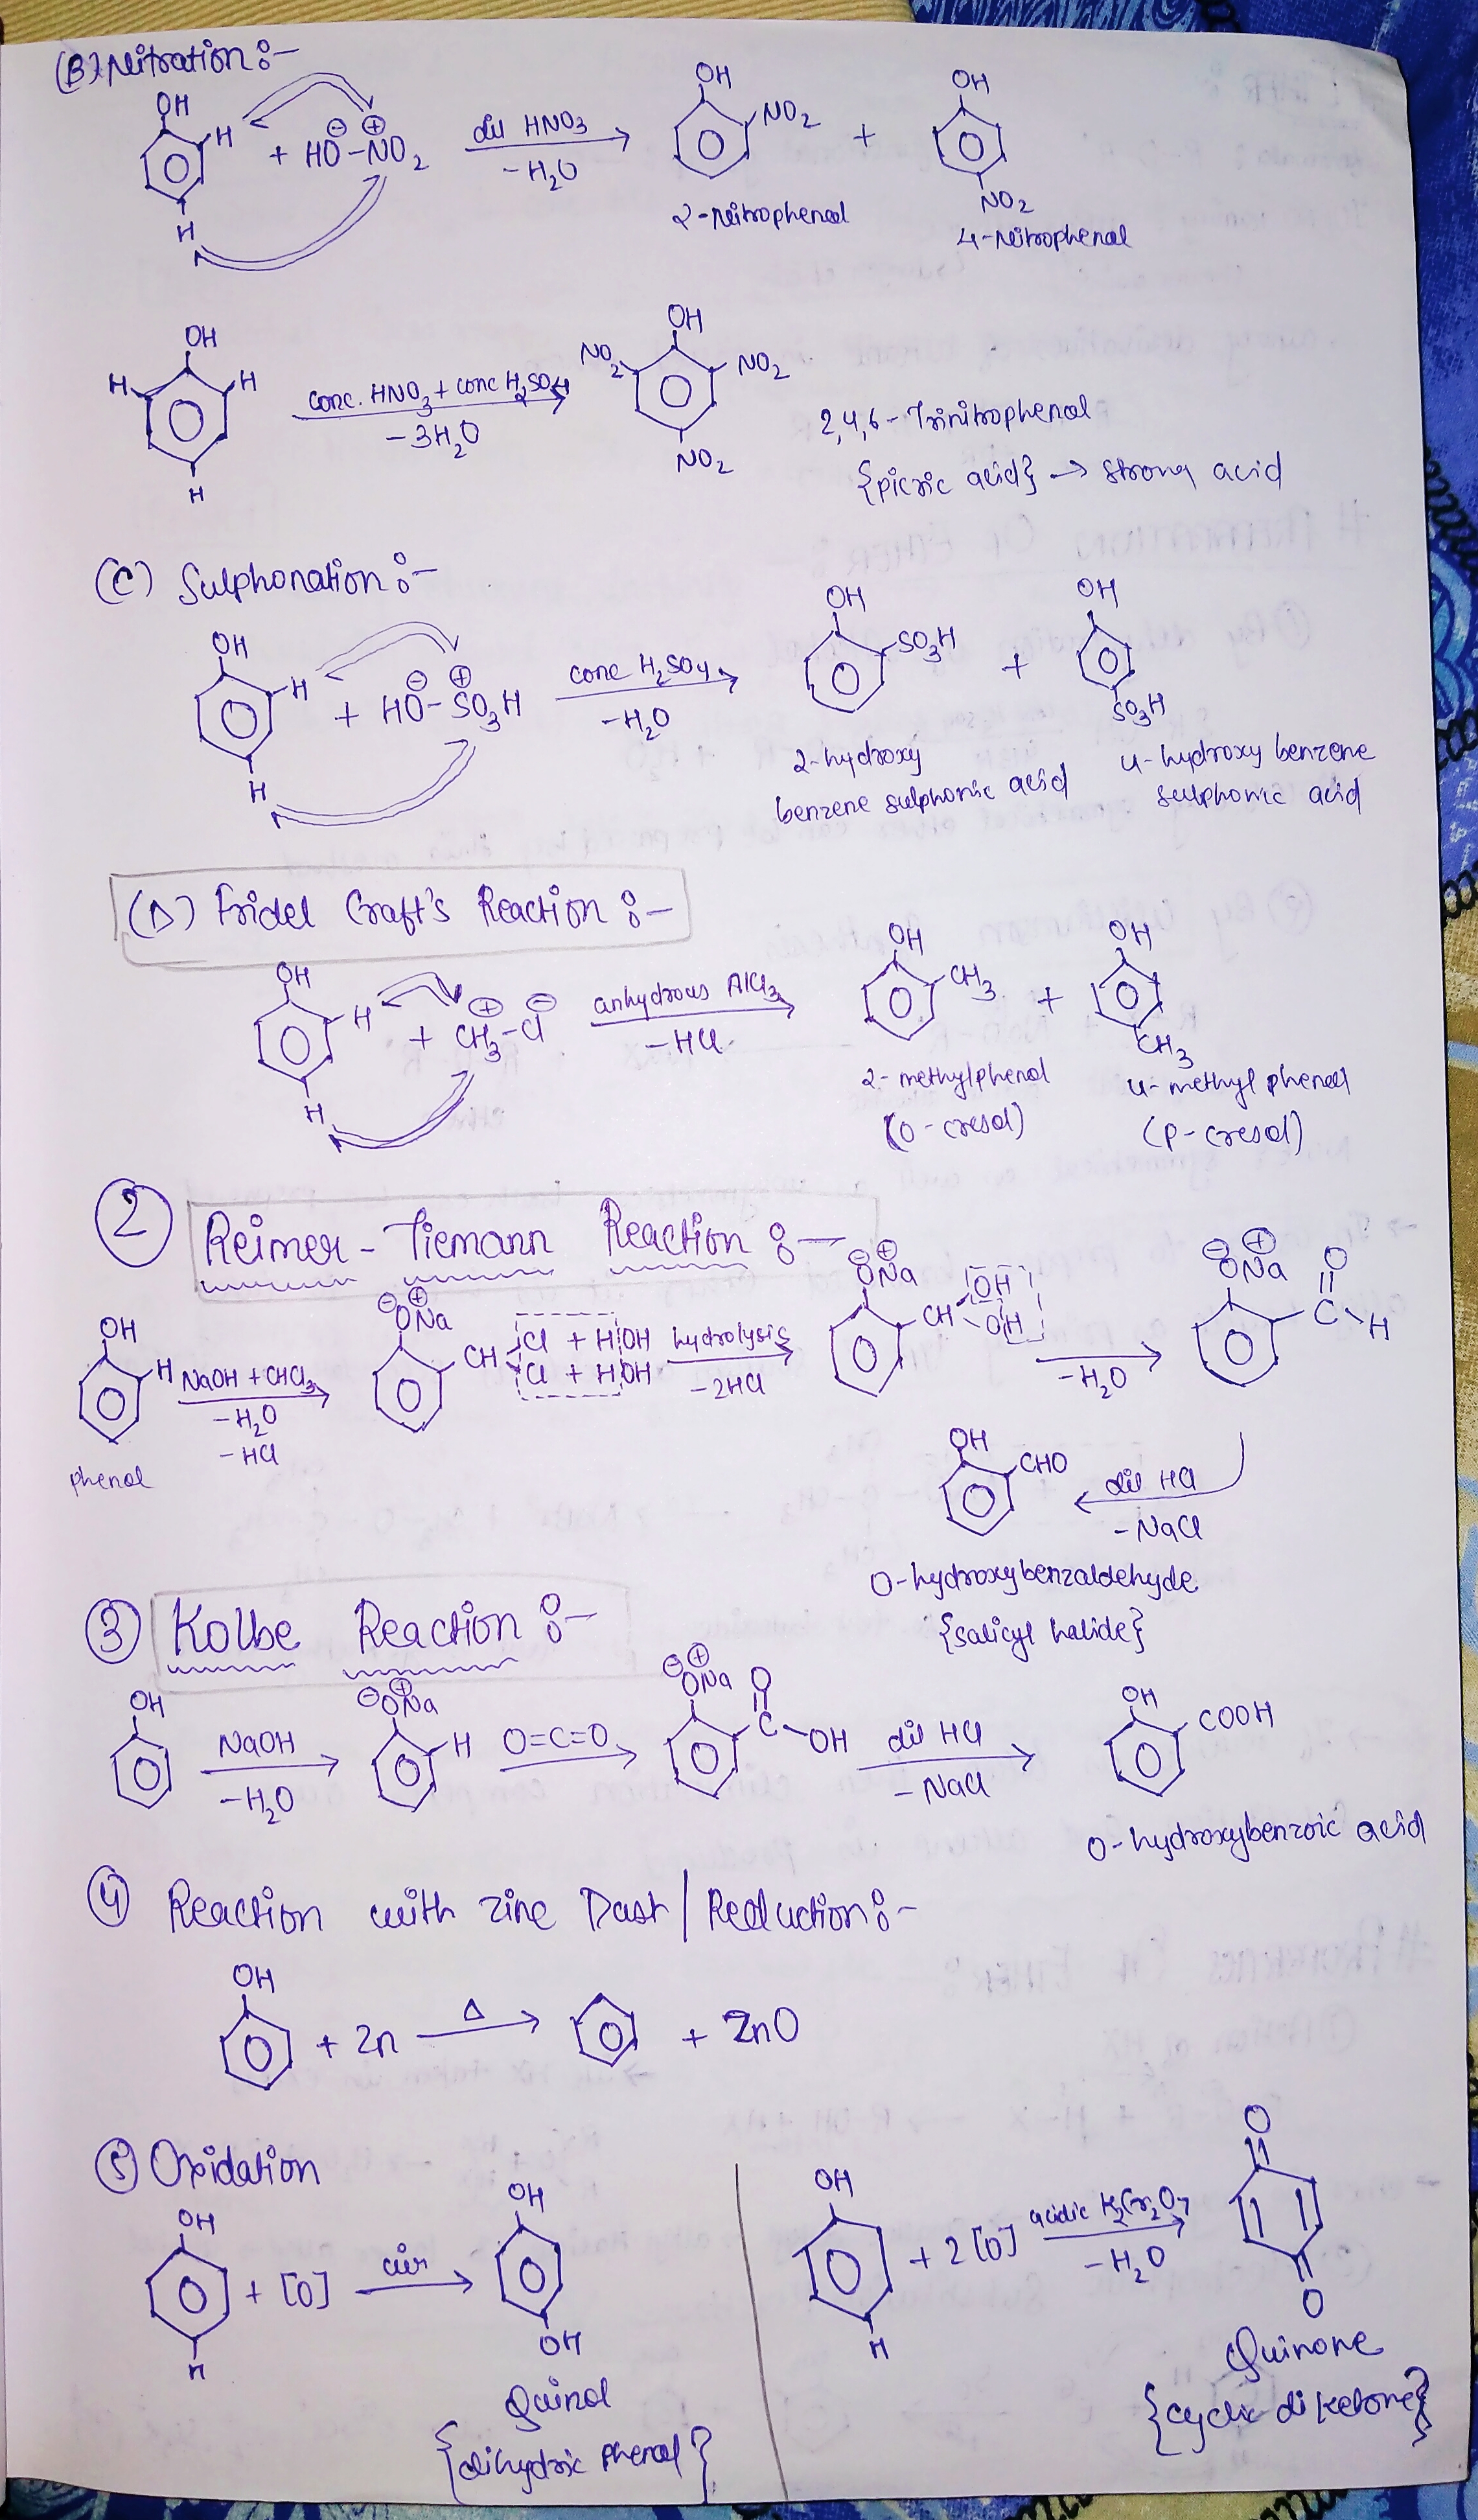 (B) Nitration :-
OH H + HO⊖-⊕NO2 dil HNO3 -H2O OH NO2 + OH NO2
H 2-Nitrophenol 4-Nitrophenol
OH H H H conc. HNO3 + conc H2SO4 -3H2O OH NO2 NO2 NO2
2,4,6-Trinitrophenol
{picric acid} → strong acid
(C) Sulphonation :-
OH H H + HO⊖-⊕SO3H conc H2SO4 -H2O OH SO3H + OH SO3H
2-hydroxy benzene sulphonic acid 4-hydroxy benzene sulphonic acid
(D) Fridel Craft's Reaction :-
OH H H + ⊕CH3-Cl⊖ anhydrous AlCl3 -HCl OH CH3 + OH CH3
2-methylphenol 4-methyl phenol
(O-cresol) (p-cresol)
② Reimer-Tiemann Reaction :-
OH H NaOH + CHCl3 -H2O -HCl ⊖ONa⊕ CH Cl + HOH Cl + HOH hydrolysis -2HCl ⊖ONa⊕ CH OH OH -H2O ⊖ONa⊕ C O H
phenol
OH CHO dil HCl -NaCl
O-hydroxybenzaldehyde
{salicyl halide}
③ Kolbe Reaction :-
OH NaOH -H2O ⊖ONa⊕ H O=C=O ⊖ONa⊕ O C OH dil HCl -NaCl OH COOH
O-hydroxybenzoic acid
④ Reaction with zinc Dast / Reduction :-
OH + Zn Δ + ZnO
⑤ Oxidation
OH H + [O] air OH OH
Quinol
{dihydric phenol}
OH H + 2[O] acidic K2Cr2O7 -H2O O O
Quinone
{cyclic diketone}